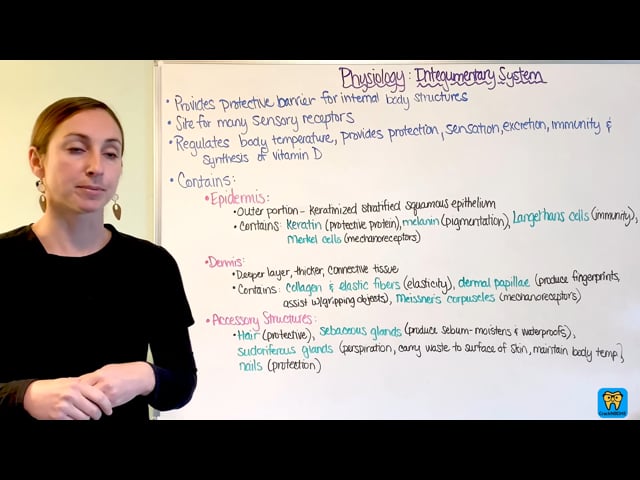 Physiology: Integumentary System
• Provides protective barrier for internal body structures
• Site for many sensory receptors
• Regulates body temperature, provides protection, sensation, excretion, immunity &
synthesis of vitamin D
• Contains:
• Epidermis:
• Outer portion - Keratinized stratified squamous epithelium
• Contains: Keratin (protective protein), melanin (pigmentation), Langerhans cells (immunity),
Merkel cells (mechanoreceptors)
• Dermis:
• Deeper layer, thicker, connective tissue
• Contains: collagen & elastic fibers (elasticity), dermal papillae (produce fingerprints,
assist w/gripping objects), Meissner's corpuscles (mechanoreceptors)
• Accessory Structures:
• Hair (protective), sebaceous glands (produce sebum-moistens & waterproofs),
sudoriferous glands (perspiration, carry waste to surface of skin, maintain body temp),
nails (protection)